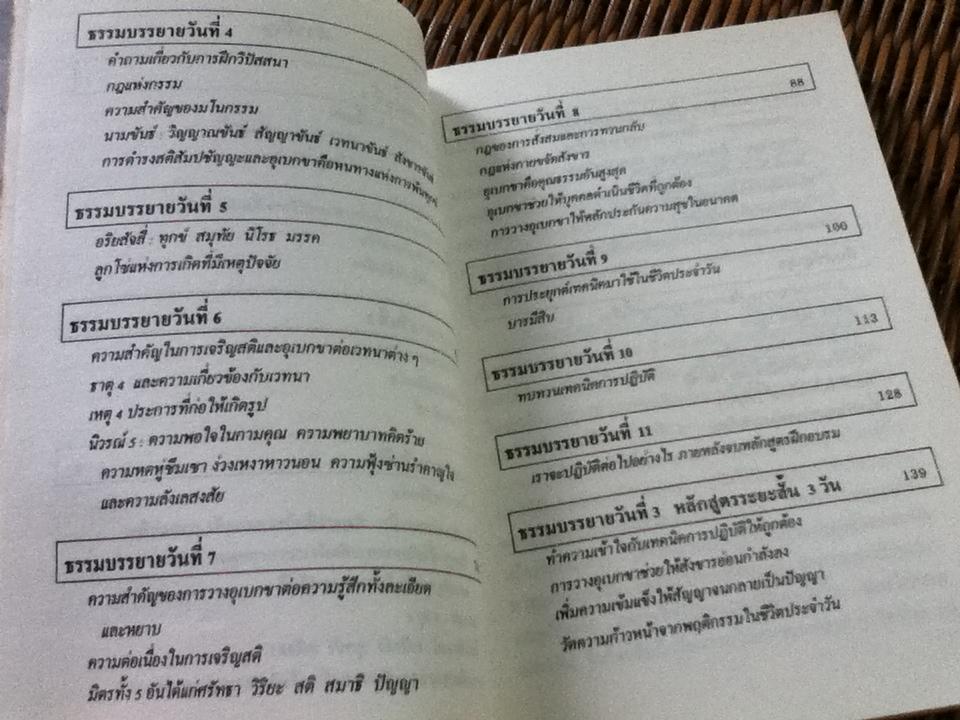 ธรรมบรรยายวันที่ 4
คำถามเกี่ยวกับการฝึกวิปัสสนา
กฎแห่งกรรม
ความสำคัญของมโนกรรม
นามขันธ์ : วิญญาณขันธ์ สัญญาขันธ์ เวทนาขันธ์ สังขารขันธ์
การดำรงสติสัมปชัญญะและอุเบกขาคือหนทางแห่งการพ้นทุกข์
ธรรมบรรยายวันที่ 5
อริยสัจสี่ : ทุกข์ สมุทัย นิโรธ มรรค
ลูกโซ่แห่งการเกิดที่มีเหตุปัจจัย
ธรรมบรรยายวันที่ 6
ความสำคัญในการเจริญสติและอุเบกขาต่อเวทนาต่าง ๆ
ธาตุ 4 และความเกี่ยวข้องกับเวทนา
เหตุ 4 ประการที่ก่อให้เกิดรูป
นิวรณ์ 5 : ความพอใจในกามคุณ ความพยาบาทคิดร้าย
ความหดหู่ซึมเซา ง่วงเหงาหาวนอน ความฟุ้งซ่านรำคาญใจ
และความลังเลสงสัย
ธรรมบรรยายวันที่ 7
ความสำคัญของการวางอุเบกขาต่อความรู้สึกทั้งละเอียด
และหยาบ
ความต่อเนื่องในการเจริญสติ
มิตรทั้ง 5 อันได้แก่ศรัทธา วิริยะ สติ สมาธิ ปัญญา
ธรรมบรรยายวันที่ 8 88
กฎของการสั่งสมและการทวนกลับ
กฎแห่งการขจัดสังขาร
อุเบกขาคือคุณธรรมอันสูงสุด
อุเบกขาช่วยให้บุคคลดำเนินชีวิตที่ถูกต้อง
การวางอุเบกขาให้หลักประกันความสุขในอนาคต
ธรรมบรรยายวันที่ 9 100
การประยุกต์เทคนิคมาใช้ในชีวิตประจำวัน
บารมีสิบ
ธรรมบรรยายวันที่ 10 113
ทบทวนเทคนิคการปฏิบัติ
ธรรมบรรยายวันที่ 11 128
เราจะปฏิบัติต่อไปอย่างไร ภายหลังจบหลักสูตรฝึกอบรม
ธรรมบรรยายวันที่ 3 หลักสูตรระยะสั้น 3 วัน 139
ทำความเข้าใจกับเทคนิคการปฏิบัติให้ถูกต้อง
การวางอุเบกขาช่วยให้สังขารอ่อนกำลังลง
เพิ่มความเข้มแข็งให้สัญญาจนกลายเป็นปัญญา
วัดความก้าวหน้าจากพฤติกรรมในชีวิตประจำวัน